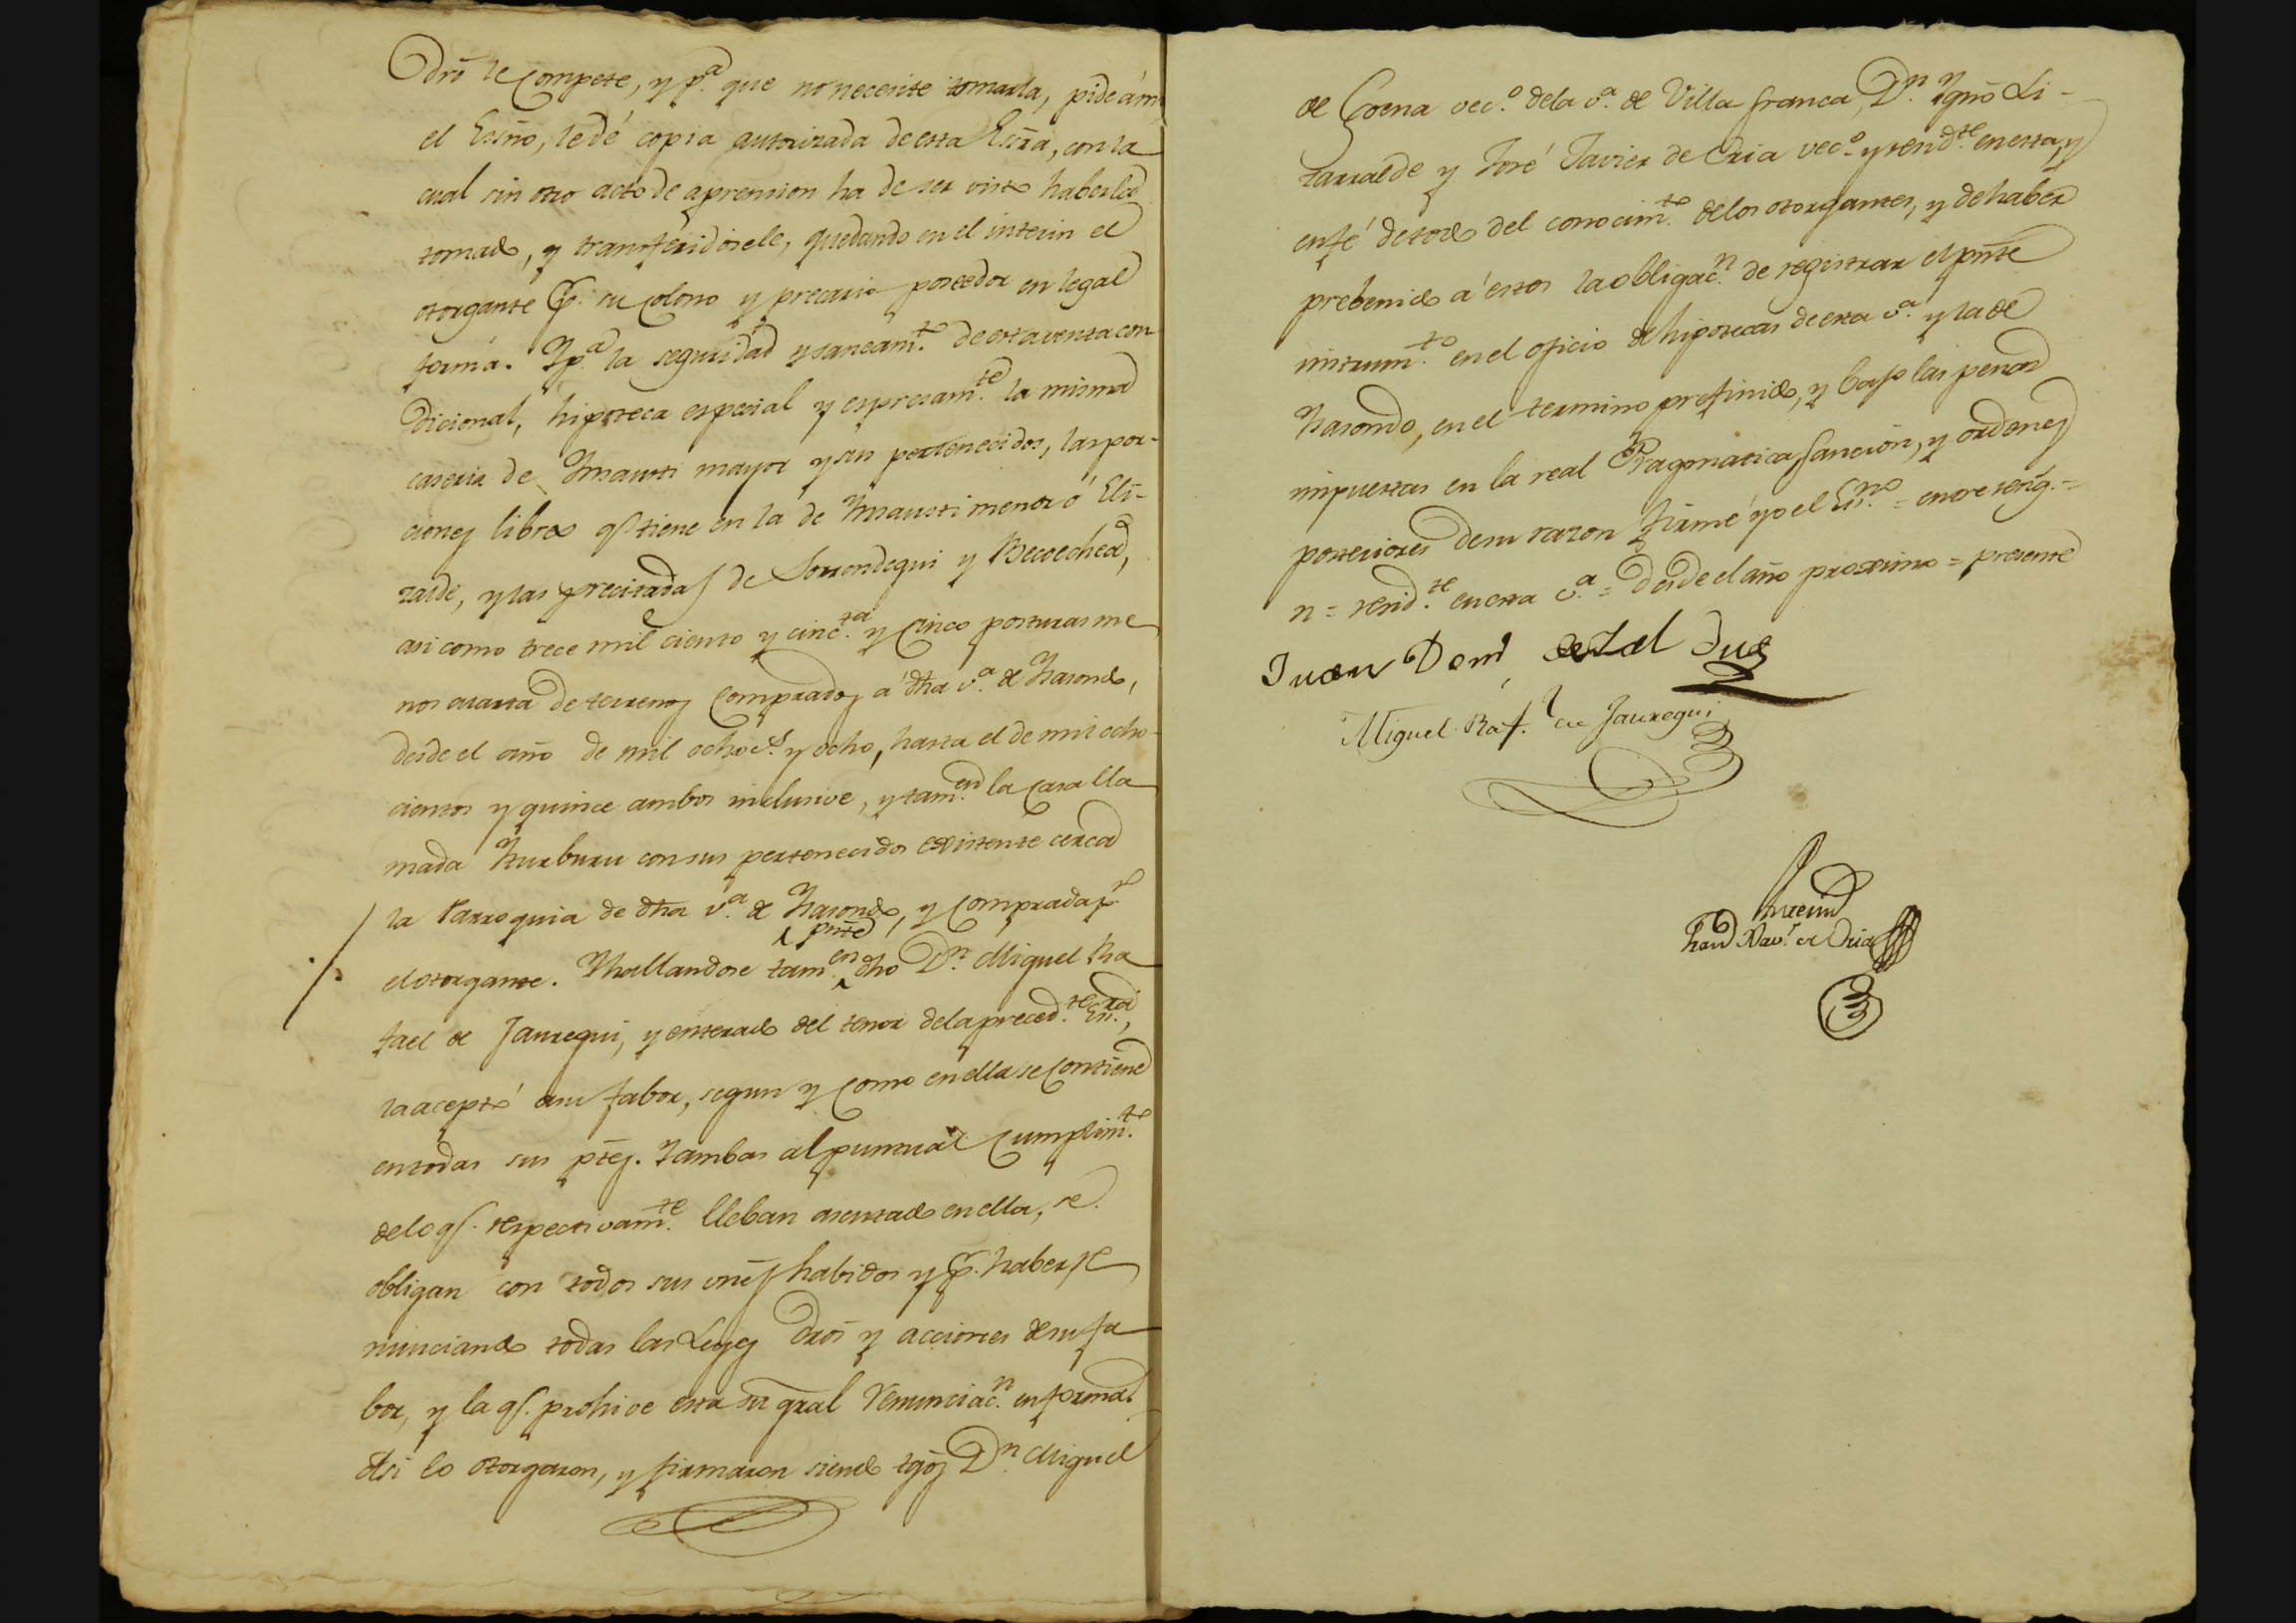 dro le compete, y p.ª que no necesite tomarla, pide á mi
el Essno, le dé copia autorizada de esta Essra, con la
cual sin otro acto de aprension ha de ser visto haberla
tomado, y transferidosele, quedando en el interin el
otorgante p. su colono y precario poseedor en legal
forma. Y p.ª la seguridad y saneam.to de esta venta con
dicional, hipoteca especial y espresam.te la misma
caseria de Insausti mayor y sus pertenecidos, las por-
ciones libres q.e tiene en la de Insausti menor ó Eli-
zalde, y las precitadas de Sorrondegui y Becoechea,
asi como trece mil ciento y cinc.ta y cinco posturas me
nos cuarta de terrenos comprados á dha v.ª de Itasondo,
desde el año de mil ochoc.s y ocho, hasta el de mil ocho-
cientos y quince ambos inclusive, y tam.en la casa lla
mada Iturburu con sus pertenecidos existente cerca
la Parroquia de dha v.ª de Itasondo, y comprada p.r
el otorgante. Y hallandose tam.en pnte dho D.n Miguel Ra
fael de Jauregui, y enterado del tenor de la preced.te Es.ra,
la aceptó á su fabor, segun y como en ella se contiene
en todas sus ptes. Y ambas al puntual cumplim.to
de lo q.e respectivam.te lleban asentado en ella, se
obligan con todos sus vnes habidos y p. haber, re
nunciando todas las Leyes dros y acciones de su fa
bor, y la q.e prohive esta su gral renunciac.n en forma.
Asi lo otorgaron, y firmaron siendo tgos D.n Miguel
de vec.º de la v.ª de Villafranca, D.n Ygnº Li-
zarralde y José Javier de Oria vec.º y resid.te en esta, y
en fé de todo del conocim.to de los otorgantes, y de haber
prebenido á estos la obligac.n de registrar el pnte
instrum.to en el oficio de hipotecas de esta v.ª y la de
Itasondo, en el termino prefinido, y bajo las penas
impuestas en la real Pragmatica sancion, y ordenes
posteriores de su razon firmé yo el Es.no = entre reng. =
n = resid.te en esta v.ª = desde el año proximo = presente
Juan Dom
Miguel Raf.l de Jauregui
Antemi
Xav.r de Oria